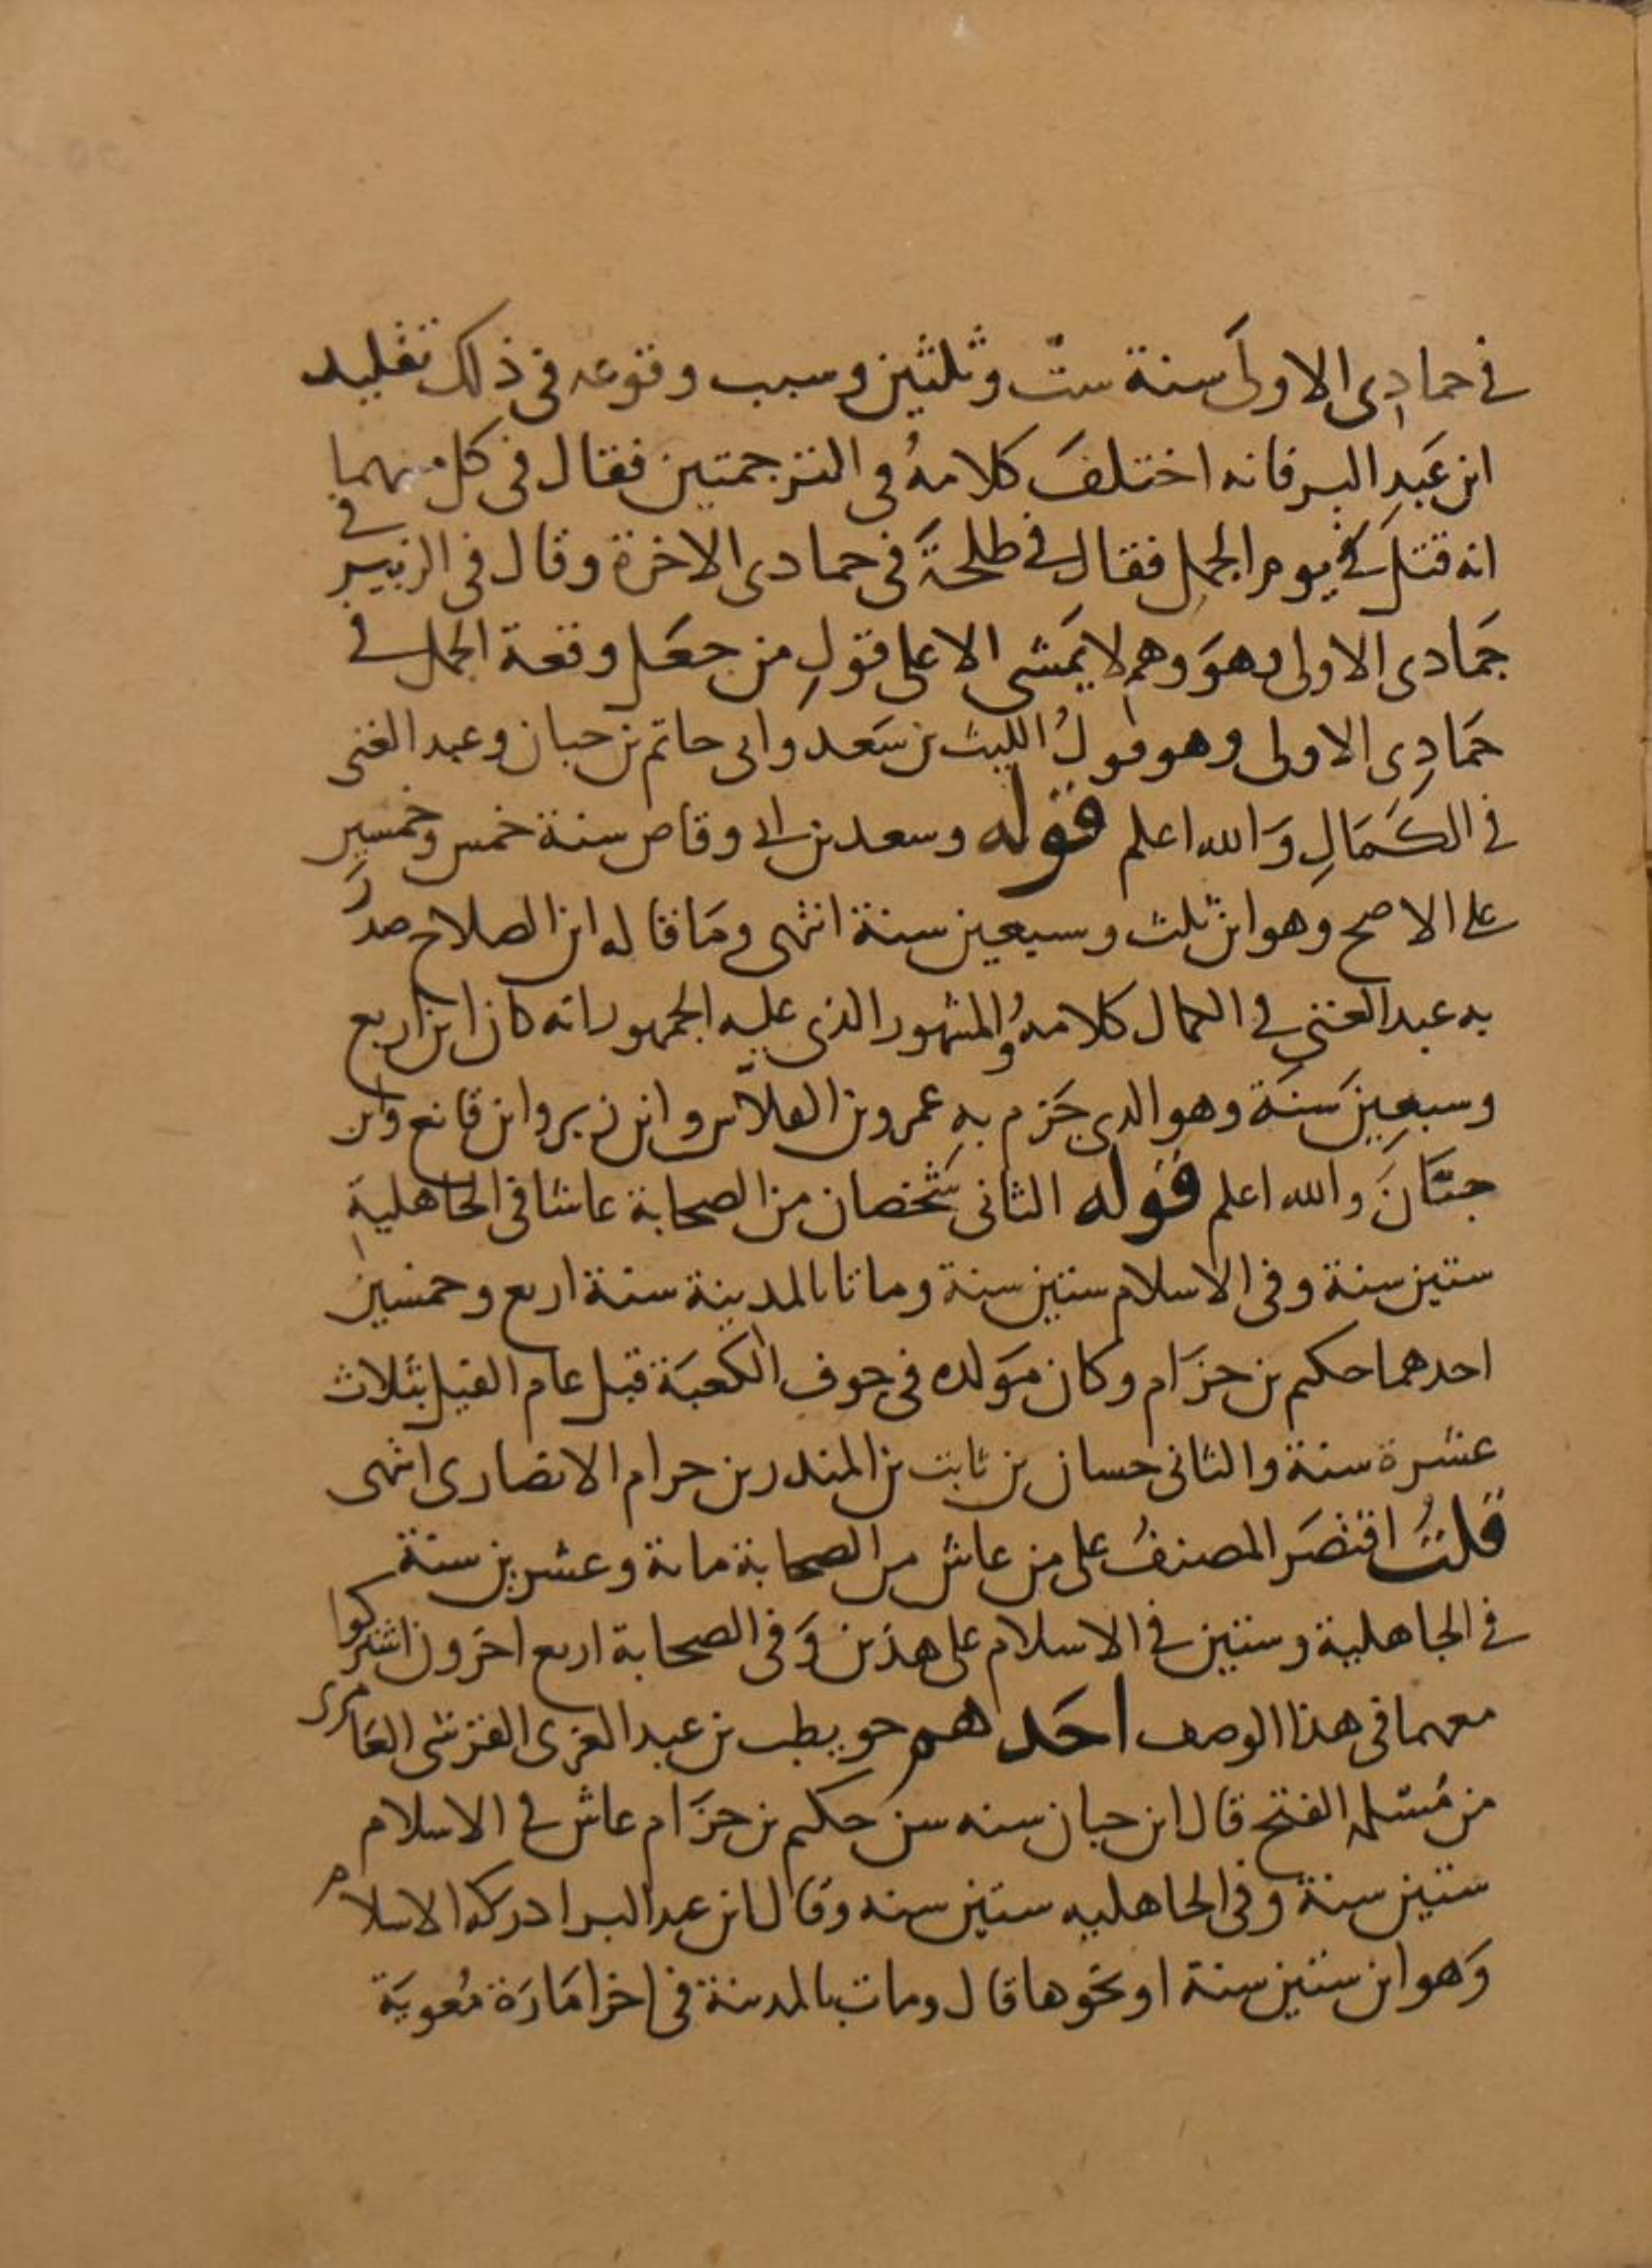 في جمادى الاولى سنة ستّ وثلثين وسبب وقوعه في ذلك تقليد
ابن عَبدِ البر فانه اختلفَ كلامهُ في الترجمتين فقال في كل منهما
انه قتل في يوم الجمل فقال في طلحةَ في جمادى الاخرة وقال في الزبير في
جَمادى الاولى وهوَ وهم لا يَمشى الا على قولِ من جعَل وقعة الجمل في
جَمادِى الاولى وهو قولُ الليث بن سَعد وابى حاتم بن حبان وعبد الغنى
في الكَمَالِ وَالله اعلم قوله وسعد بن ابى وقاص سنة خمس وخمسين
على الاصح وهو ابن ثلث وسبعين سنة انتهى ومَا قاله ابن الصلاح صدَّر
به عبد الغنى في الكمال كلامهُ والمشهور الذى عليه الجمهور انه كان ابن اربع
وسبعِينَ سَنَة وهو الذى جَزم بهِ عمرو بن الفلاّس وابن زبر وابن قانع وابن
حبَّانَ والله اعلم قوله الثانى شَخصان من الصحابة عاشا في الجاهليةِ
ستين سنة وفى الاسلام ستين سنة وماتا بالمدينة سنة اربع وخمسين
احدهما حكيم بن حزَام وكان مَولده في جوف الكعبَة قبل عام الفيل بثلاث
عشرة سنة والثانى حسان بن ثابت بن المنذر بن حرام الانصارى انتهى
قلتُ اقتصَر المصنفُ على من عاش من الصحابة مائة وعشرين سنة
في الجاهلية وستين في الاسلام على هذين وَفى الصحابة اربع اخرون اشتركوا
معهما في هذا الوصف احَدهم حويطب بن عبد العزى القرشى العَامرى
من مُسلمة الفتح قال ابن حبان سنه سن حكيم بن حزَام عاش في الاسلام
ستين سنة وفى الجاهليه ستين سنه وقال ابن عبد البر ادركه الاسلام
وَهو ابن ستين سنة او نحوها قال ومات بالمدينة في اخر امَارَة مُعويَة